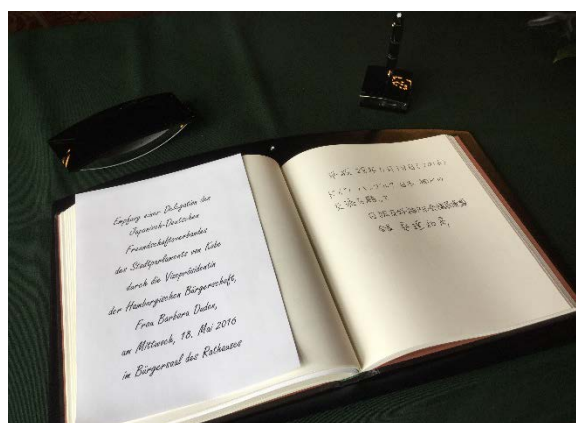 Empfang einer Delegation des
Japanisch-Deutschen
Freundschaftsverbandes
des Stadtparlaments von Kobe
durch die Vizepräsidentin
der Hamburgischen Bürgerschaft,
Frau Barbara Duden,
am Mittwoch, 18. Mai 2016
im Bürgersaal des Rathauses
ドイツ ハンブルク 日本 神戸の
交流を願って